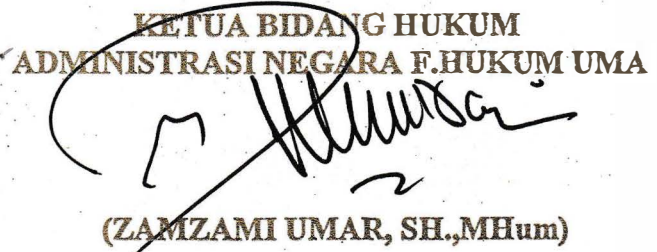 KETUA BIDANG HUKUM
ADMINISTRASI NEGARA F.HUKUM UMA
(ZAMZAMI UMAR, SH.,MHum)